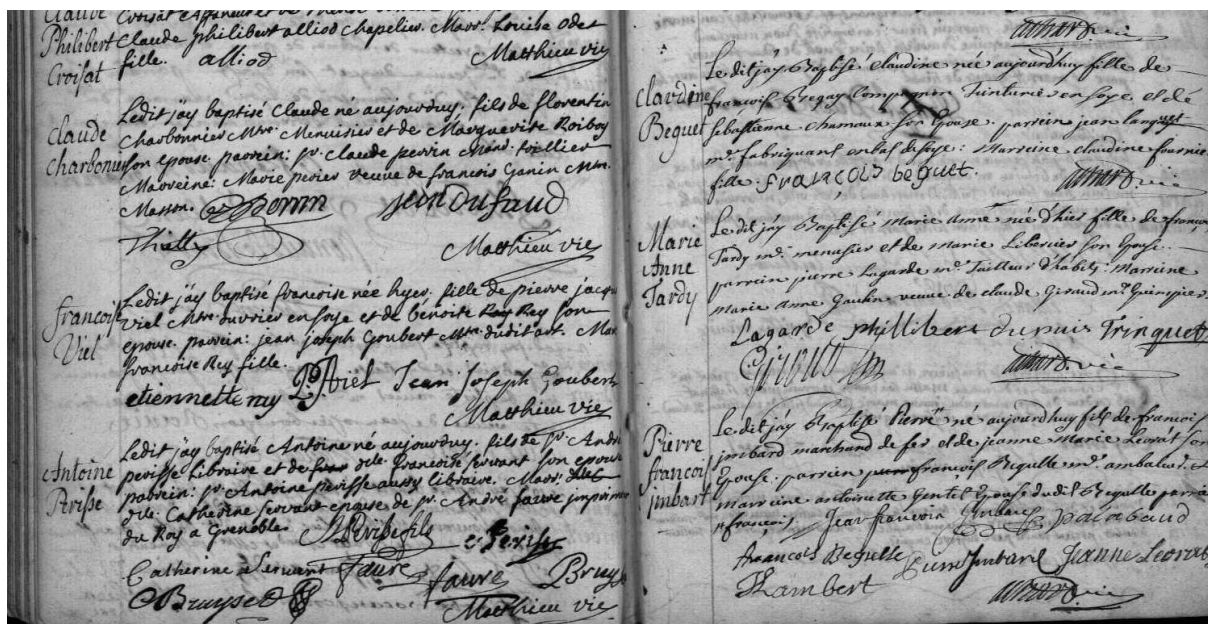 Claude
Philibert
Croisat
Claude philibert alliod chapelier. Marr. Louise odet
fille. alliod Matthieu vic
Claude
Charbonnier
Ledit jäy baptisé Claude né aujourduy. fils de florentin
Charbonnier Mtre. Menuisier et de Marguerite
son epouse. parrein: sr. Claude perrin Mand. toillier
Marreine: Marie perier veuve de francois Ganin Mtre.
Masson. Perrin jean Dufaud
Thially
Matthieu vic
francoise
Viel
Ledit jäy baptisé francoise née hyer. fille de pierre jacq
Viel Mtre. ouvrier en soye et de bénoite Rey son
epouse. parrein: jean joseph Goubert Mtre. dudit art. Mar
francoise Rey fille.
etiennette ray Viel Jean Joseph Goubert
Matthieu vic
Antoine
Perisse
Ledit jäy baptisé Antoine né aujourduy. fils de sr. André
perisse Libraire et de dlle. francoise servant son epouse
parrein: sr. Antoine perisse aussy libraire. Marr.
dlle. Catherine servant epouse de sr. André faure imprimeur
du Roy a Grenoble.
Perisse fils Perisse
Catherine Servant Faure faure Bruys
Bruyset
Matthieu vic
achard. vic
Claudine
Beguet
Le dit jáy Baptisé claudine née aujourdhuy fille de
françois Begay Compagnon Tinturier en soye et de
Sébastienne chamaux son Epouse. parrein jean
md. fabriquant en bas de soye: Marreine claudine fournie
fille. françois beguet. achard. vic
Marie
Anne
Tardy
Le dit jáy Baptisé Marie anne née d'hier fille de franç
Tardy md. menusier et de Marie Libercier son Epouse.
parrein pierre Lagarde md. Tailleur d'habits: Marreine
Marie anne Gaulin veuve de claude Giraud md. Guimpier
Lagarde phillibert dupuis Trinquet
achard. vic
Pierre
francois
jmbart
Le dit jáy Baptisé Pierre né aujourdhuy fils de francois
jmbard marchand de fer et de jeanne Marie Leorat son
Epouse. parrein francois Begulle md. ambaleur.
marreine antoinette Gentil Epouse dudit Begulle parrain
francois Jean francois Palabaud
françois Begulle Jmbard Jeanne Leorat
Lambert
achard. vic